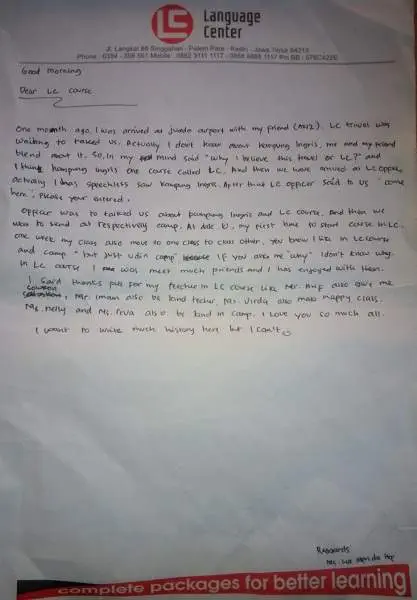 LC
Language
Center
Jl. Langkat 88 Singgahan - Pelem Pare - Kediri - Jawa Timur 64213
Phone : 0354 - 398 561 Mobile : 0852 3111 1117 -
Good morning
Dear LC course
One month ago, I was arrived at juada airport with my friend LC travel was
waiting to traked us. Actually I don't know about kampung Ingris, me and my friend
blend about it. So, in my mind said "why I believe this travel of LC?" and
I think kampung Ingris one course called LC. And then we have arrived at LC office,
actually I was speechless saw kampung Ingris. After that LC officer said to us "come
here". Please your entered.
Officer was to talked us about kampung Ingris and LC course. And then we
was to send at respectively camp. At date 10, my first time to start course in LC.
one week my class also move to one class to class other. you know I like in LC course
and camp "but just udin camp" If you ask me "why" I don't know why.
In LC course I was meet much friends and I was enjoyed with them.
I said thanks full for my teacher in LC course like Mr. also give me
solution, Mr. Iman also be kind techer, Ms. Virda also make happy class.
Ms. Nelly and Ms. also be kind in camp. I love you so much all.
I want to write much history here but I can't
Regards
Ms.
complete packages for better learning